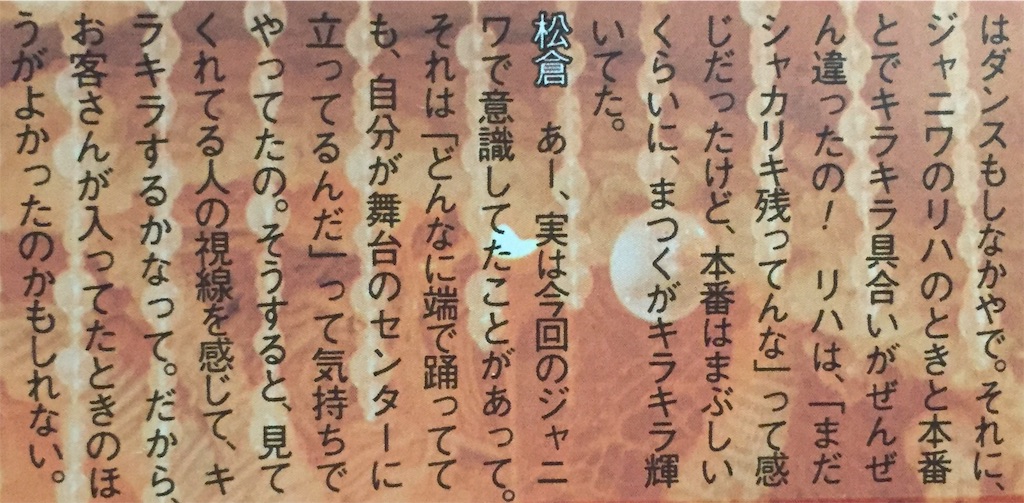 はダンスもしなかやで。それに、
ジャニワのリハのときと本番
とでキラキラ具合いがぜんぜ
ん違ったの！　リハは、「まだ
シャカリキ残ってんな」って感
じだったけど、本番はまぶしい
くらいに、まつくがキラキラ輝
いてた。
松倉　あー、実は今回のジャニ
ワで意識してたことがあって。
それは「どんなに端で踊ってて
も、自分が舞台のセンターに
立ってるんだ」って気持ちで
やってたの。そうすると、見て
くれてる人の視線を感じて、キ
ラキラするかなって。だから、
お客さんが入ってたときのほ
うがよかったのかもしれない。